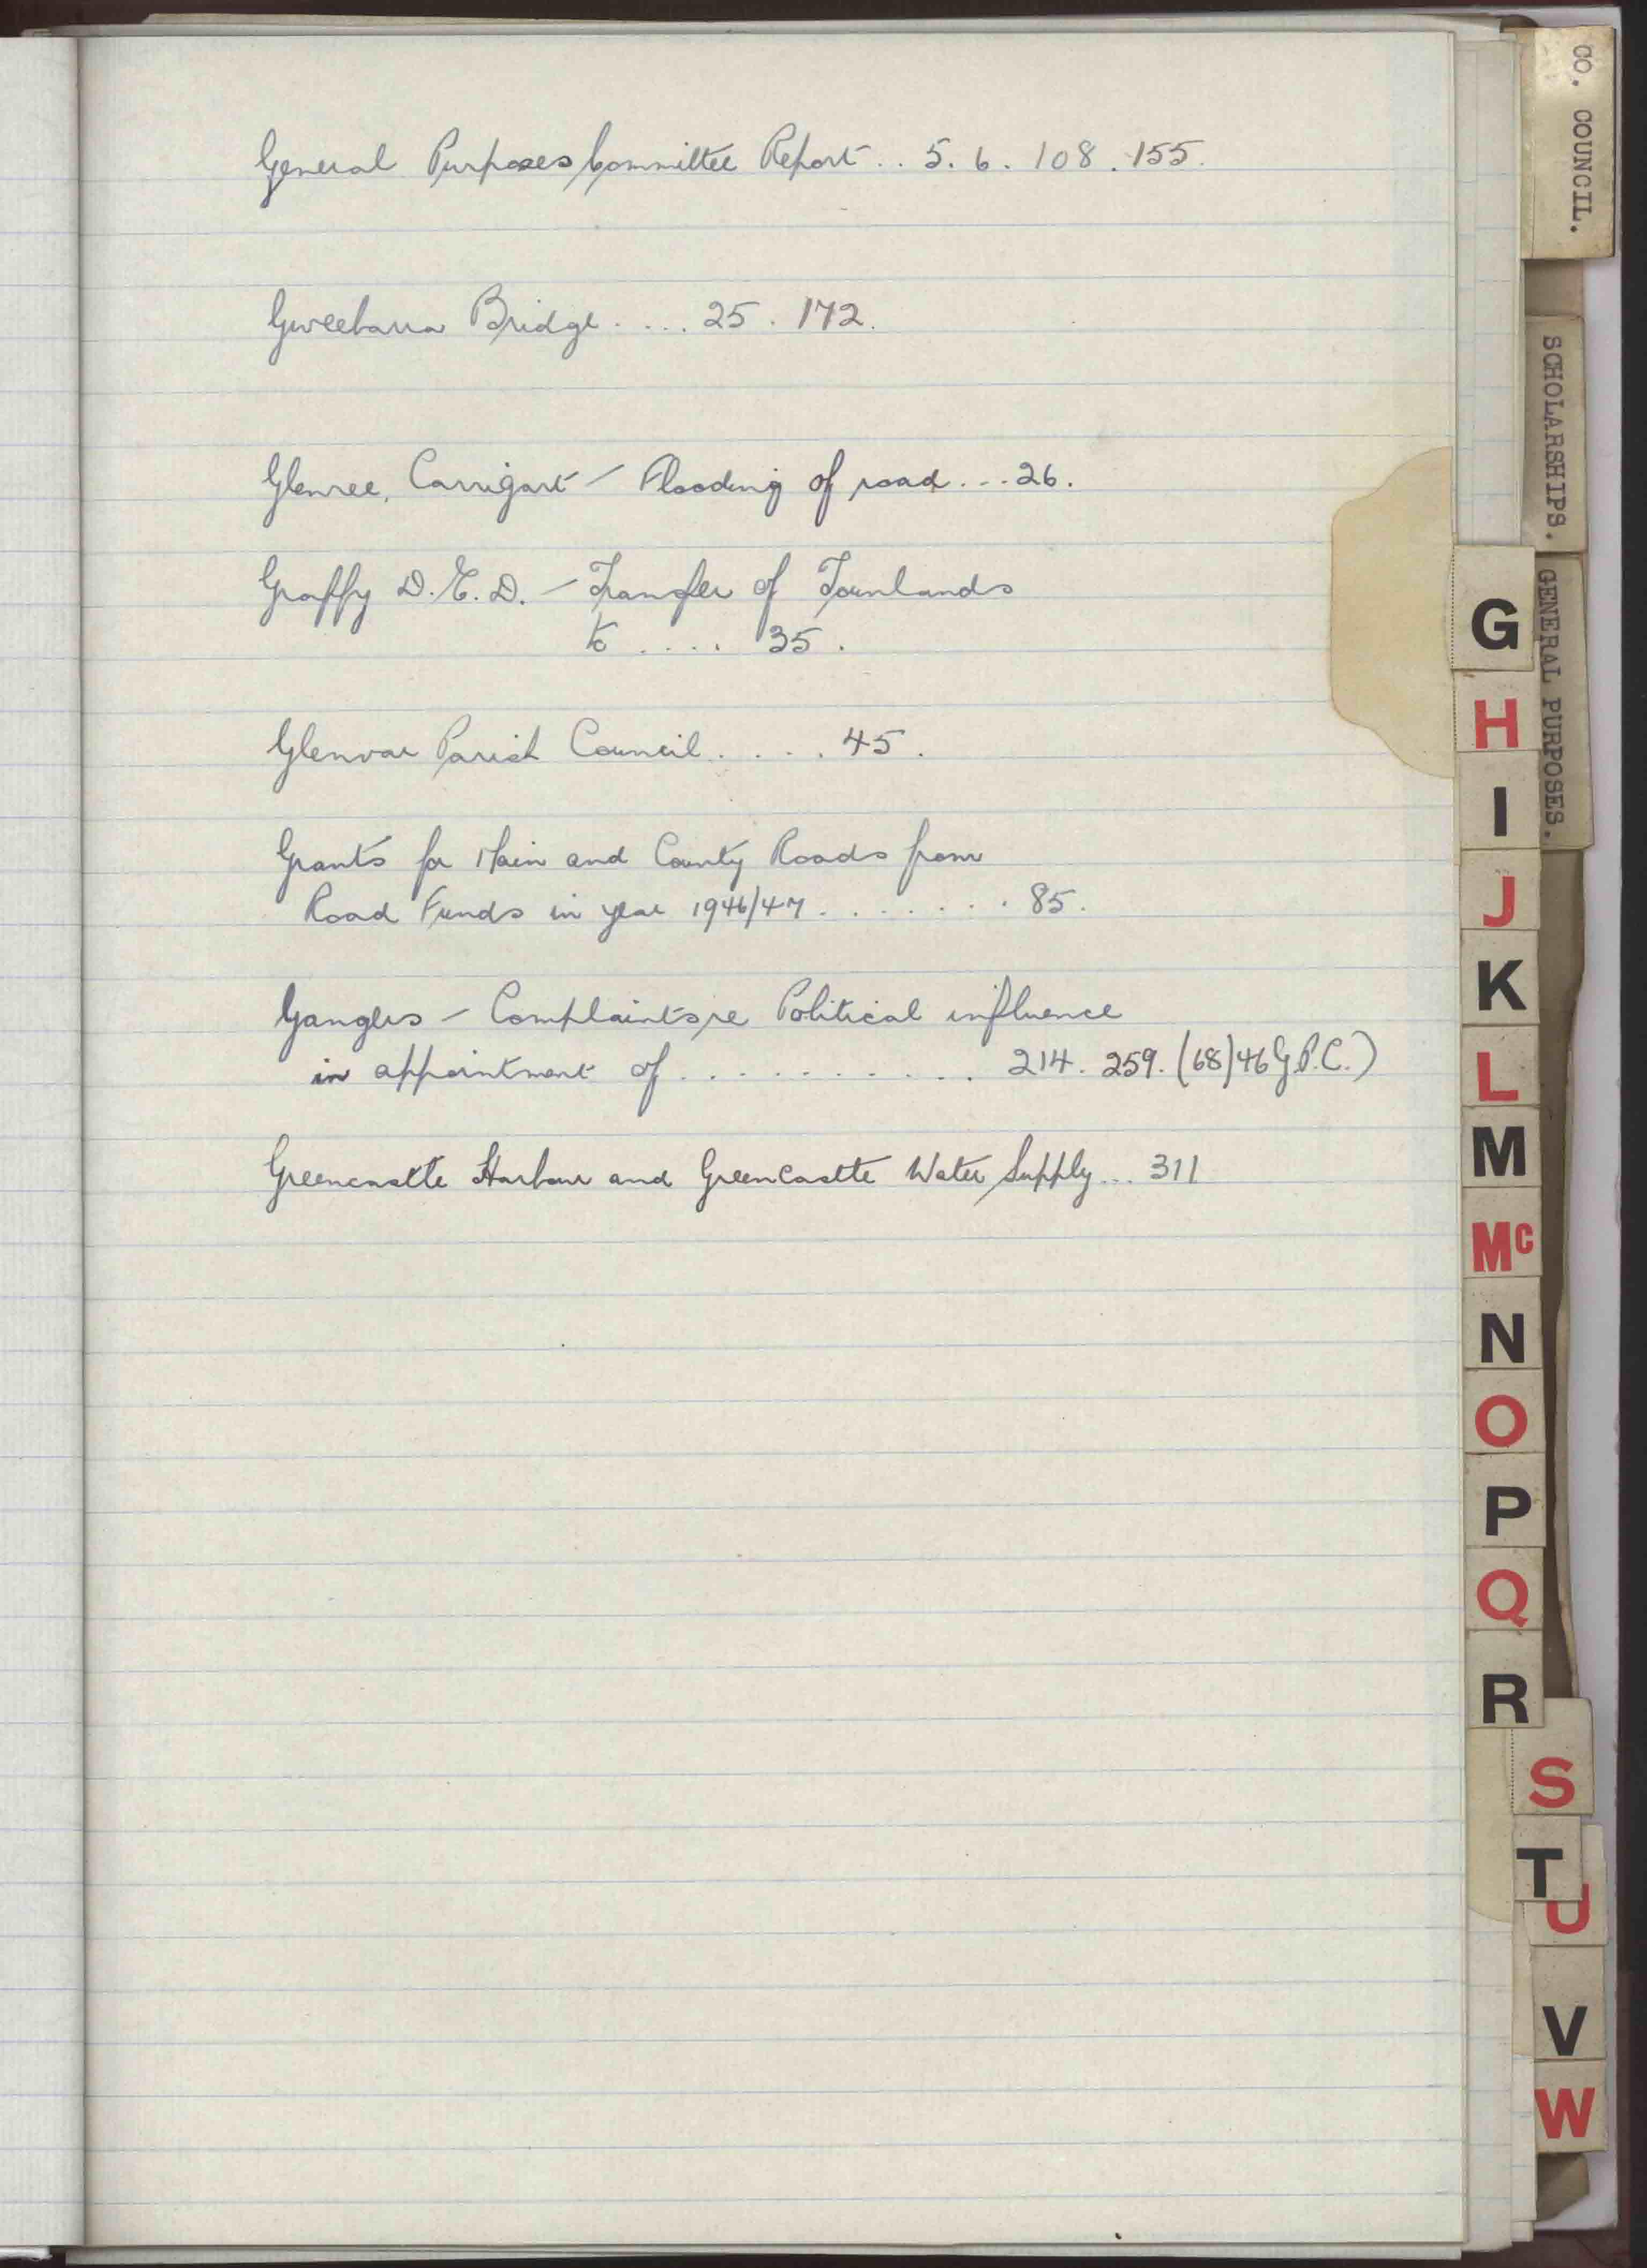 General Purposes Committee Report .. 5. 6. 108. 155.
Gweebarra Bridge ..... 25. 172.
Glenree, Carrigart - Flooding of road ... 26.
Graffy D.E.D. - Transfer of Townlands
to .... 35.
Glenvar Parish Council .... 45.
Grants for Main and County Roads from
Road Funds in year 1946/47 ........ 85.
Gangers - Complaints re Political influence
in appointment of ........... 214. 259. (68/46 G.P.C.)
Greencastle Harbour and Greencastle Water Supply ... 311
CO. COUNCIL.
SCHOLARSHIPS.
GENERAL PURPOSES.
G
H
I
J
K
L
M
Mc
N
O
P
Q
R
S
T
U
V
W